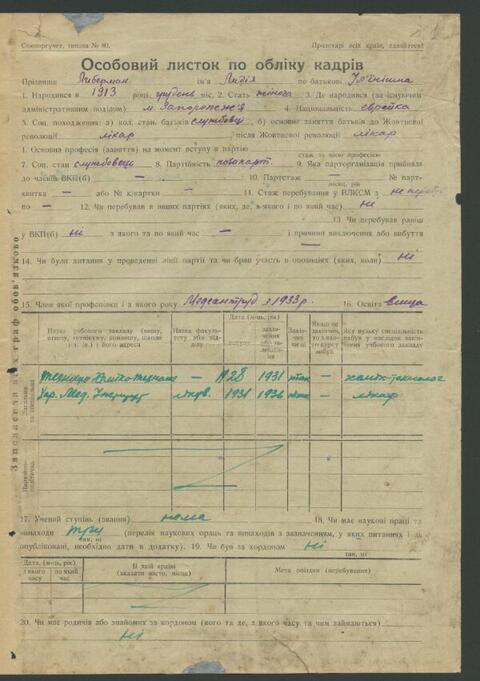 Союзоргучет, типова № 80.
Пролетарі всіх країн, єднайтеся!
Особовий листок по обліку кадрів
Прізвище Либерман ім'я Лидія по батькові
1. Народився в 1913 році, грудень міс. 2. Стать жіноча 3. Де народився (за існуючим
адміністративним поділом) м. Запоріжжя 4. Національність єврейка
5. Соц. походження: а) кол. стан батьків службовці б) основне заняття батьків до Жовтневої
революції лікар після Жовтневої революції лікар
6. Основна професія (заняття) на момент вступу в партію —
стаж за цією професією
7. Соц. стан службовець 8. Партійність позапарт. 9. Яка парторганізація прийняла
до членів ВКП(б) — 10. Партстаж — № парт-
місяць, рік
квитка — або № к/картки — 11. Стаж перебування у ВЛКСМ з
по — 12. Чи перебував в інших партіях (яких, де, з якого і по який час) ні
13. Чи перебував раніш
у ВКП(б) ні з якого та по який час — і причини виключення або вибуття
—
14. Чи були хитання у проведенні лінії партії та чи брав участь в опозиціях (яких, коли) ні
15. Член якої профспілки і з якого року Медсантруд з 1933 р. 16. Освіта вища
Заповнення всіх граф обов'язково
Назва учбового закладу (вищу, технікуму, школи і т. д.) і його адреса
Назва факультету або відділу
Дата (м-ць, рік)
вступу
закінчення або вибуття
Закінчив чи ні
Якщо не закінчив, то з якого курсу вибув
Яку вузьку спеціальність набув у наслідок закінчення учбового закладу
— 1928 1931 так —
Хар. Мед. Інститут лікув. 1931 1936 так — лікар
17. Учений ступінь (звання) нема 18. Чи має наукові праці та
винаходи (перелік наукових праць та винаходів з зазначенням, у яких питаннях і де
так, ні
опубліковані, необхідно дати в додатку). 19. Чи був за кордоном ні
так, ні
Дата (м-ць, рік)
з якого часу
по який час
В якій країні
(вказати місто, місця)
Мета поїздки (перебування)
20. Чи має родичів або знайомих за кордоном (кого та де, з якого часу та чим займаються)
ні